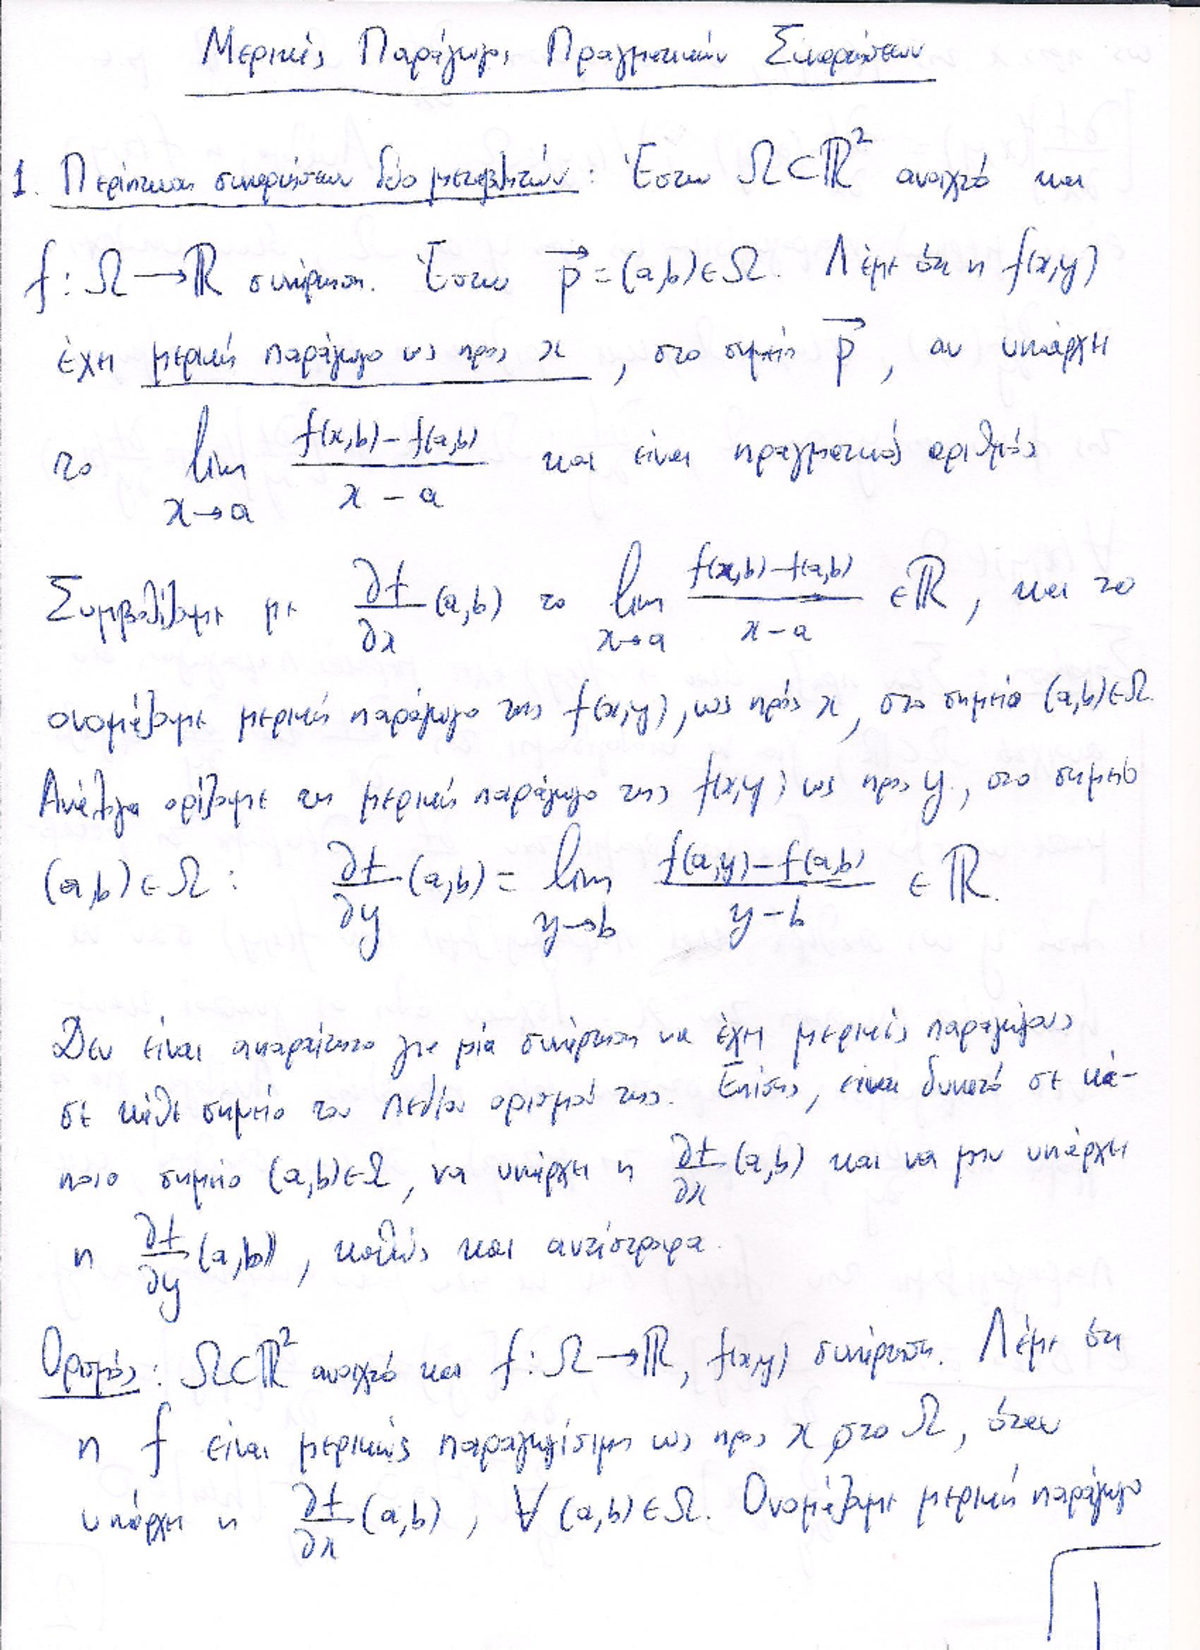 Μερικές Παράγωγοι Πραγματικών Συναρτήσεων
1. Περίπτωση συναρτήσεων δύο μεταβλητών : Έστω Ω⊂ℝ² ανοιχτό και
f : Ω → ℝ συνάρτηση. Έστω p⃗ = (a,b) ∈ Ω. Λέμε ότι η f(x,y)
έχει μερική παράγωγο ως προς x , στο σημείο p⃗ , αν υπάρχει
το lim x→a (f(x,b) − f(a,b))/(x − a) και είναι πραγματικός αριθμός
Συμβολίζουμε με ∂f/∂x (a,b) το lim x→a (f(x,b) − f(a,b))/(x − a) ∈ ℝ , και το
ονομάζουμε μερική παράγωγο της f(x,y) , ως πρός x , στο σημείο (a,b) ∈ Ω.
Ανάλογα ορίζουμε τη μερική παράγωγο της f(x,y) ως προς y , στο σημείο
(a,b) ∈ Ω : ∂f/∂y (a,b) = lim y→b (f(a,y) − f(a,b))/(y − b) ∈ ℝ.
Δεν είναι απαραίτητο για μία συνάρτηση να έχει μερικές παραγώγους
σε κάθε σημείο του πεδίου ορισμού της. Επίσης, είναι δυνατό σε κά-
ποιο σημείο (a,b) ∈ Ω , να υπάρχει η ∂f/∂x (a,b) και να μην υπάρχει
η ∂f/∂y (a,b) , καθώς και αντίστροφα.
Ορισμός : Ω⊂ℝ² ανοιχτό και f : Ω → ℝ , f(x,y) συνάρτηση. Λέμε ότι
η f είναι μερικώς παραγωγίσιμη ως προς x στο Ω , όταν
υπάρχει η ∂f/∂x (a,b) , ∀ (a,b) ∈ Ω. Ονομάζουμε μερική παράγωγο
1